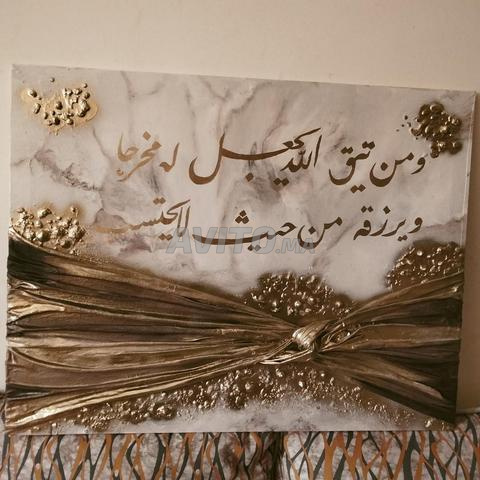 ومن يتق الله يجعل له مخرجا
ويرزقه من حيث لا يحتسب
AVITO.MA